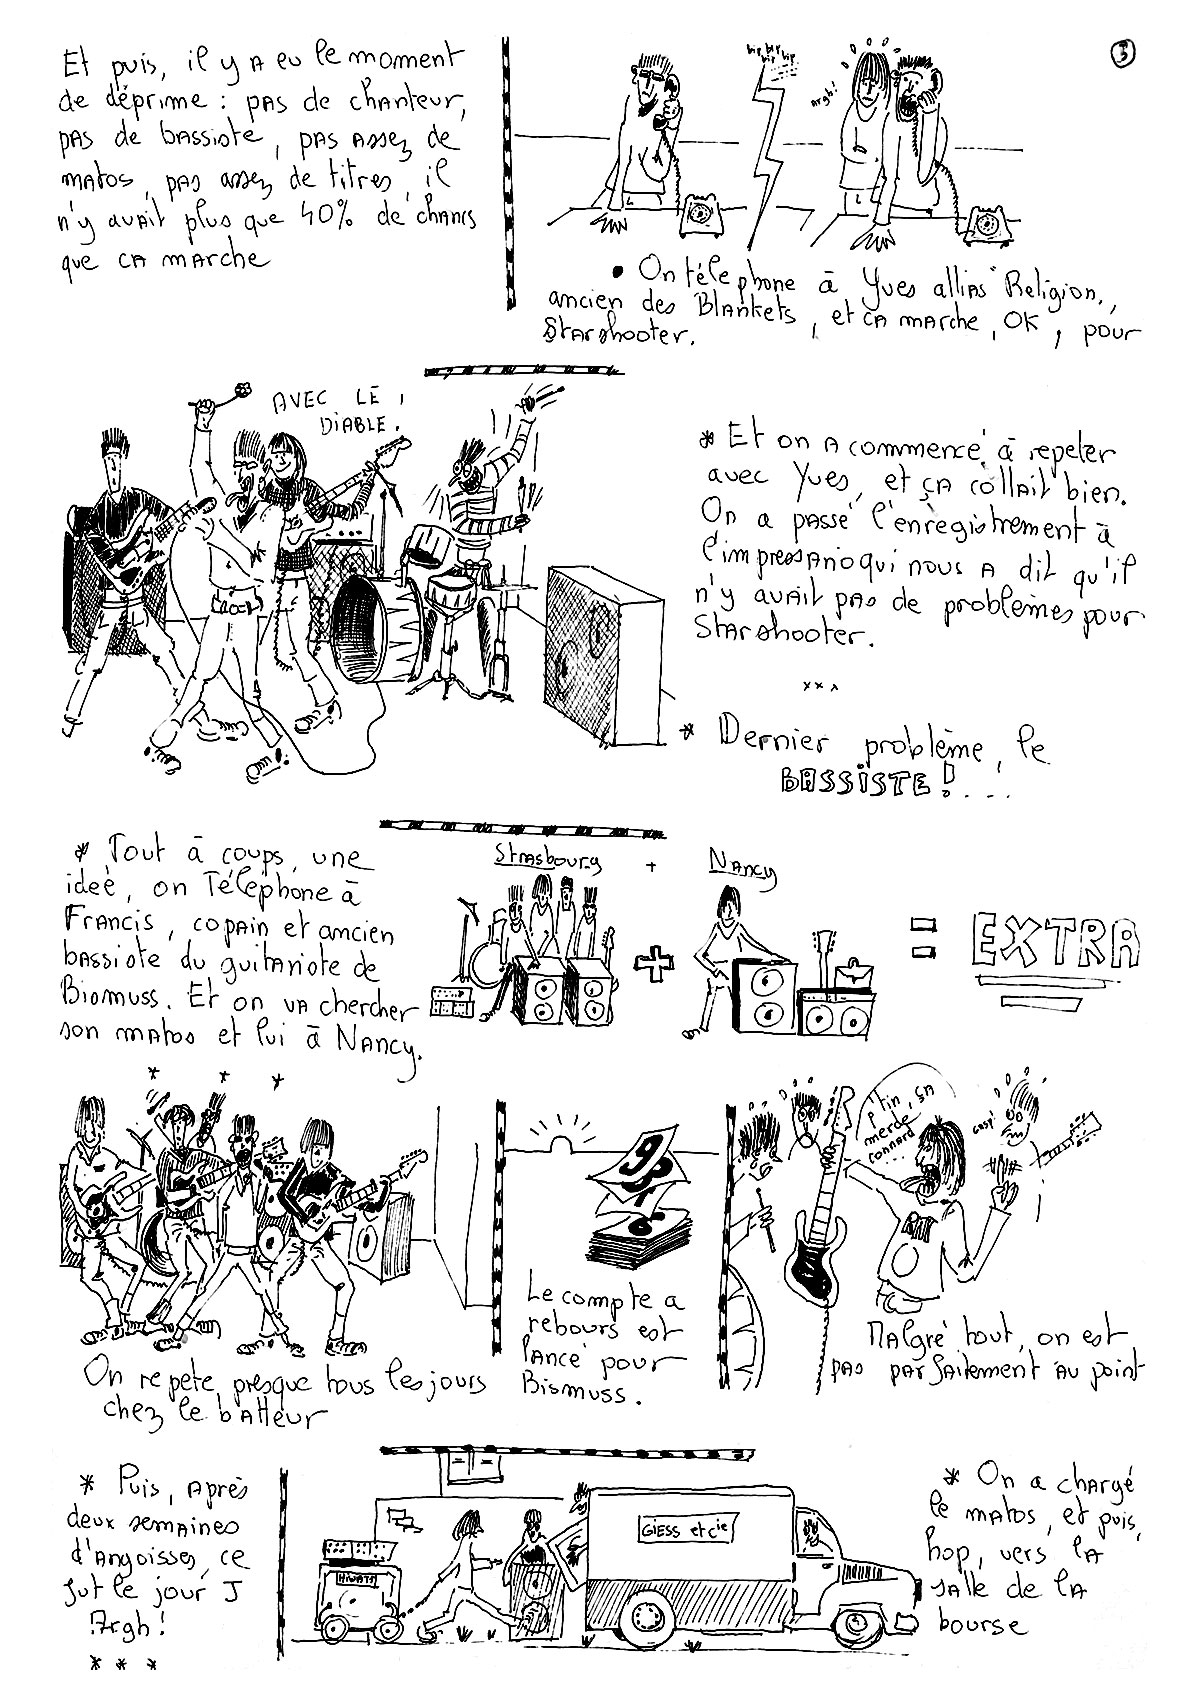 3
Et puis, il y A eu le moment
de déprime : pas de chanteur,
pas de bassiste, pas assez de
matos, pas assez de titres, il
n'y avait plus que 40% de chancs
que ça marche
bip bip bip
bip bip
Argh!
• On téléphone à Yves allias Religion,
ancien des Blankets, et ça marche, OK, pour
Starshooter.
AVEC LE
DIABLE.
* Et on a commencé à repeter
avec Yves, et ça collait bien.
On a passé l'enregistrement à
l'impressario qui nous a dit qu'il
n'y avait pas de problèmes pour
Starshooter.
* Dernier problème, le
BASSISTE!...
* Tout à coups, une
ideé, on Téléphone à
Francis, copain et ancien
bassiste du guitariste de
Bismuss. Et on va chercher
son matos et lui à Nancy.
Strasbourg + Nancy
+ = EXTRA
* * *
On repete presque tous les jours
chez le batteur
Le compte a
rebours est
lancé pour
Bismuss.
p'tin, ça
merde
connard
gasp!
Malgré tout, on est
pas parfaitement au point
* Puis, après
deux semaines
d'Angoisses, ce
fut le jour J
Argh!
* * *
HIWATT
GIESS et cie
* On a chargé
le matos, et puis,
hop, vers la
salle de la
bourse